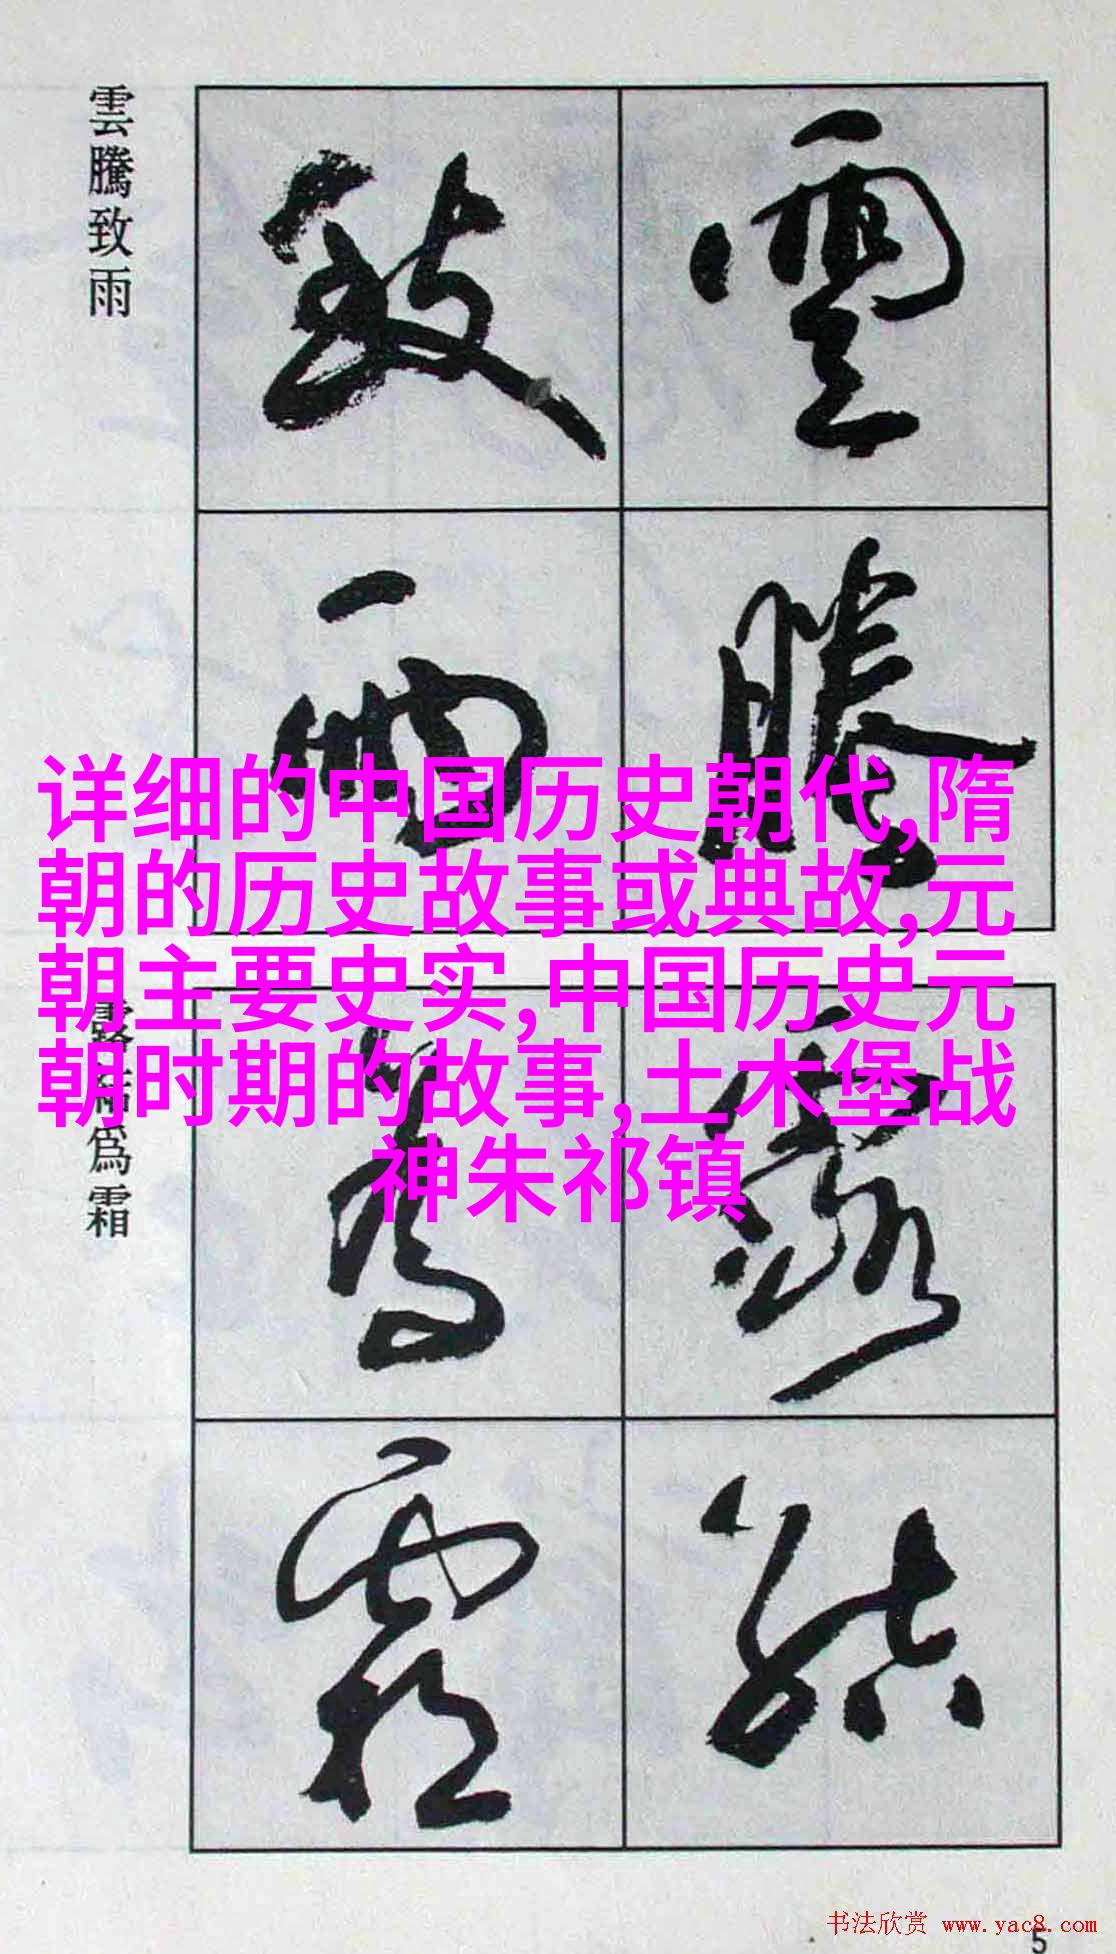 雲騰致雨
雲
騰
致
雨
详细的中国历史朝代,隋
朝的历史故事或典故,元
朝主要史实,中国历史元
朝时期的故事,土木堡战
神朱祁镇
露結爲霜
露
結
爲
霜
书法欣赏 www.yac8.com
5